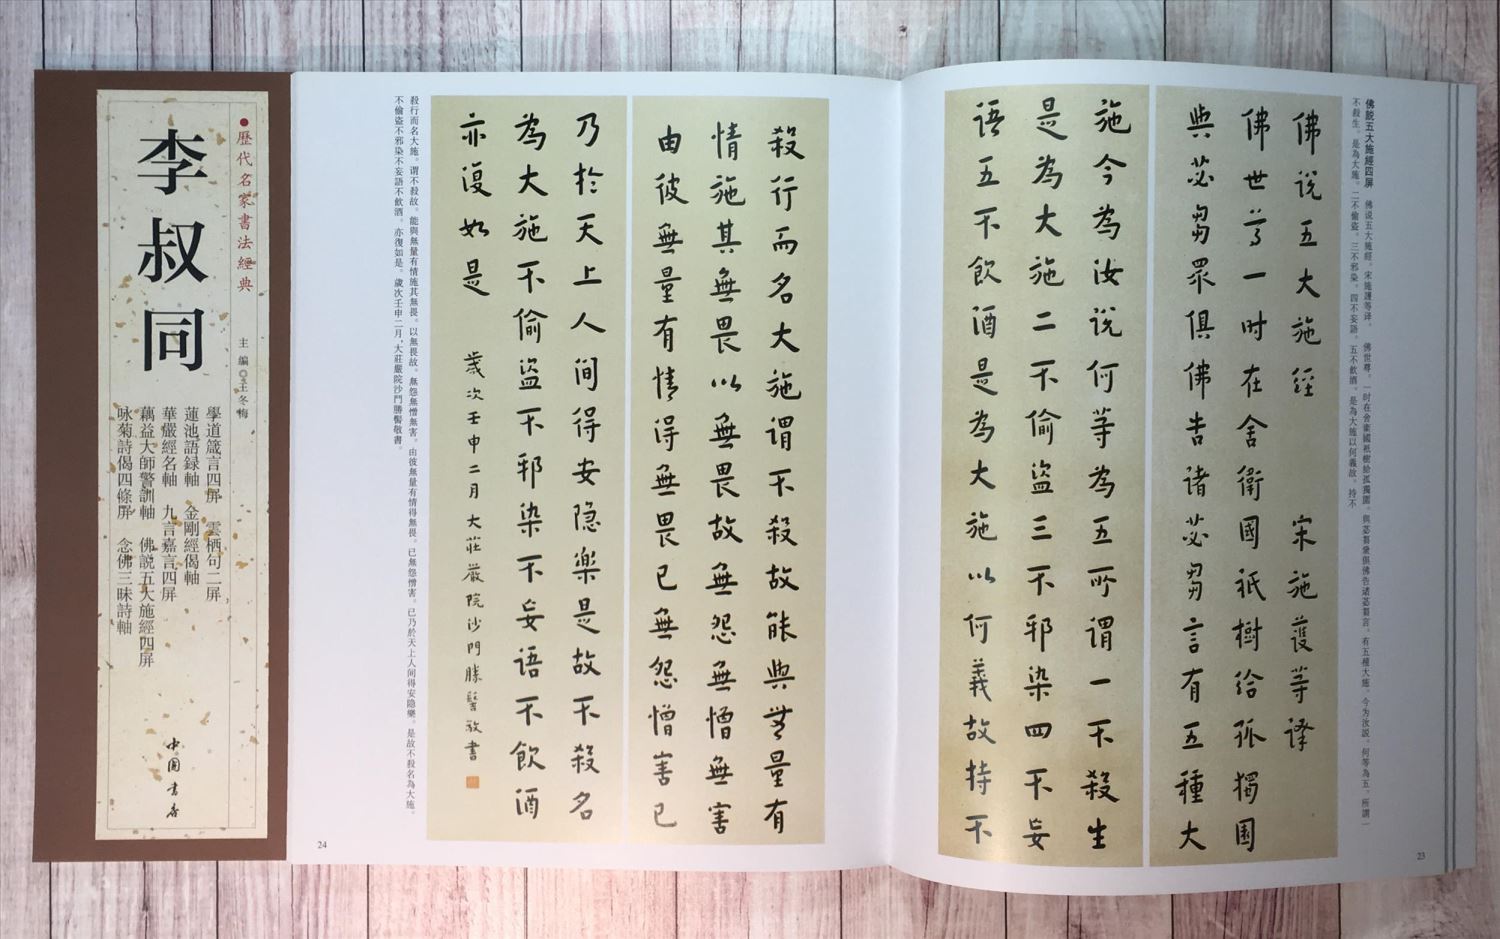 佛說五大施經四屏　佛说五大施經。宋施護等译。　佛世尊。一时在舍衛國祇樹給孤獨園。與苾芻衆俱佛告诸苾芻言。有五種大施。今为汝説。何等為五。所謂一
不殺生。是為大施。二不偷盜。三不邪染。四不妄語。五不飲酒。是為大施以何義故。持不
佛説五大施經　宋施護等譯
佛世尊一时在舍衛國祇樹給孤獨園
與苾芻眾俱佛告諸苾芻言有五種大
施今為汝說何等為五所謂一不殺生
是為大施二不偷盜三不邪染四不妄
語五不飲酒是為大施以何義故持不
23
殺行而名大施謂不殺故能與無量有
情施其無畏以無畏故無怨無憎無害
由彼無量有情得無畏已無怨憎害已
乃於天上人間得安隐樂是故不殺名
為大施不偷盜不邪染不妄語不飲酒
亦復如是　歲次壬申二月大莊嚴院沙門勝髻敬書
殺行而名大施。谓不殺故。能與無量有情施其無畏。以無畏故。無怨無憎無害。由彼無量有情得無畏。已無怨憎害。已乃於天上人间得安隐樂。是故不殺名為大施。
不偷盜不邪染不妄語不飲酒。亦復如是。歲次壬申二月，大莊嚴院沙門勝髻敬書。
24
●歷代名家書法經典
主編◎王冬梅
李叔同
學道箴言四屏　雲栖句二屏
蓮池語録軸　金剛經偈軸
華嚴經名軸　九言嘉言四屏
藕益大師警訓軸　佛説五大施經四屏
咏菊詩偈四條屏　念佛三昧詩軸
中国书店